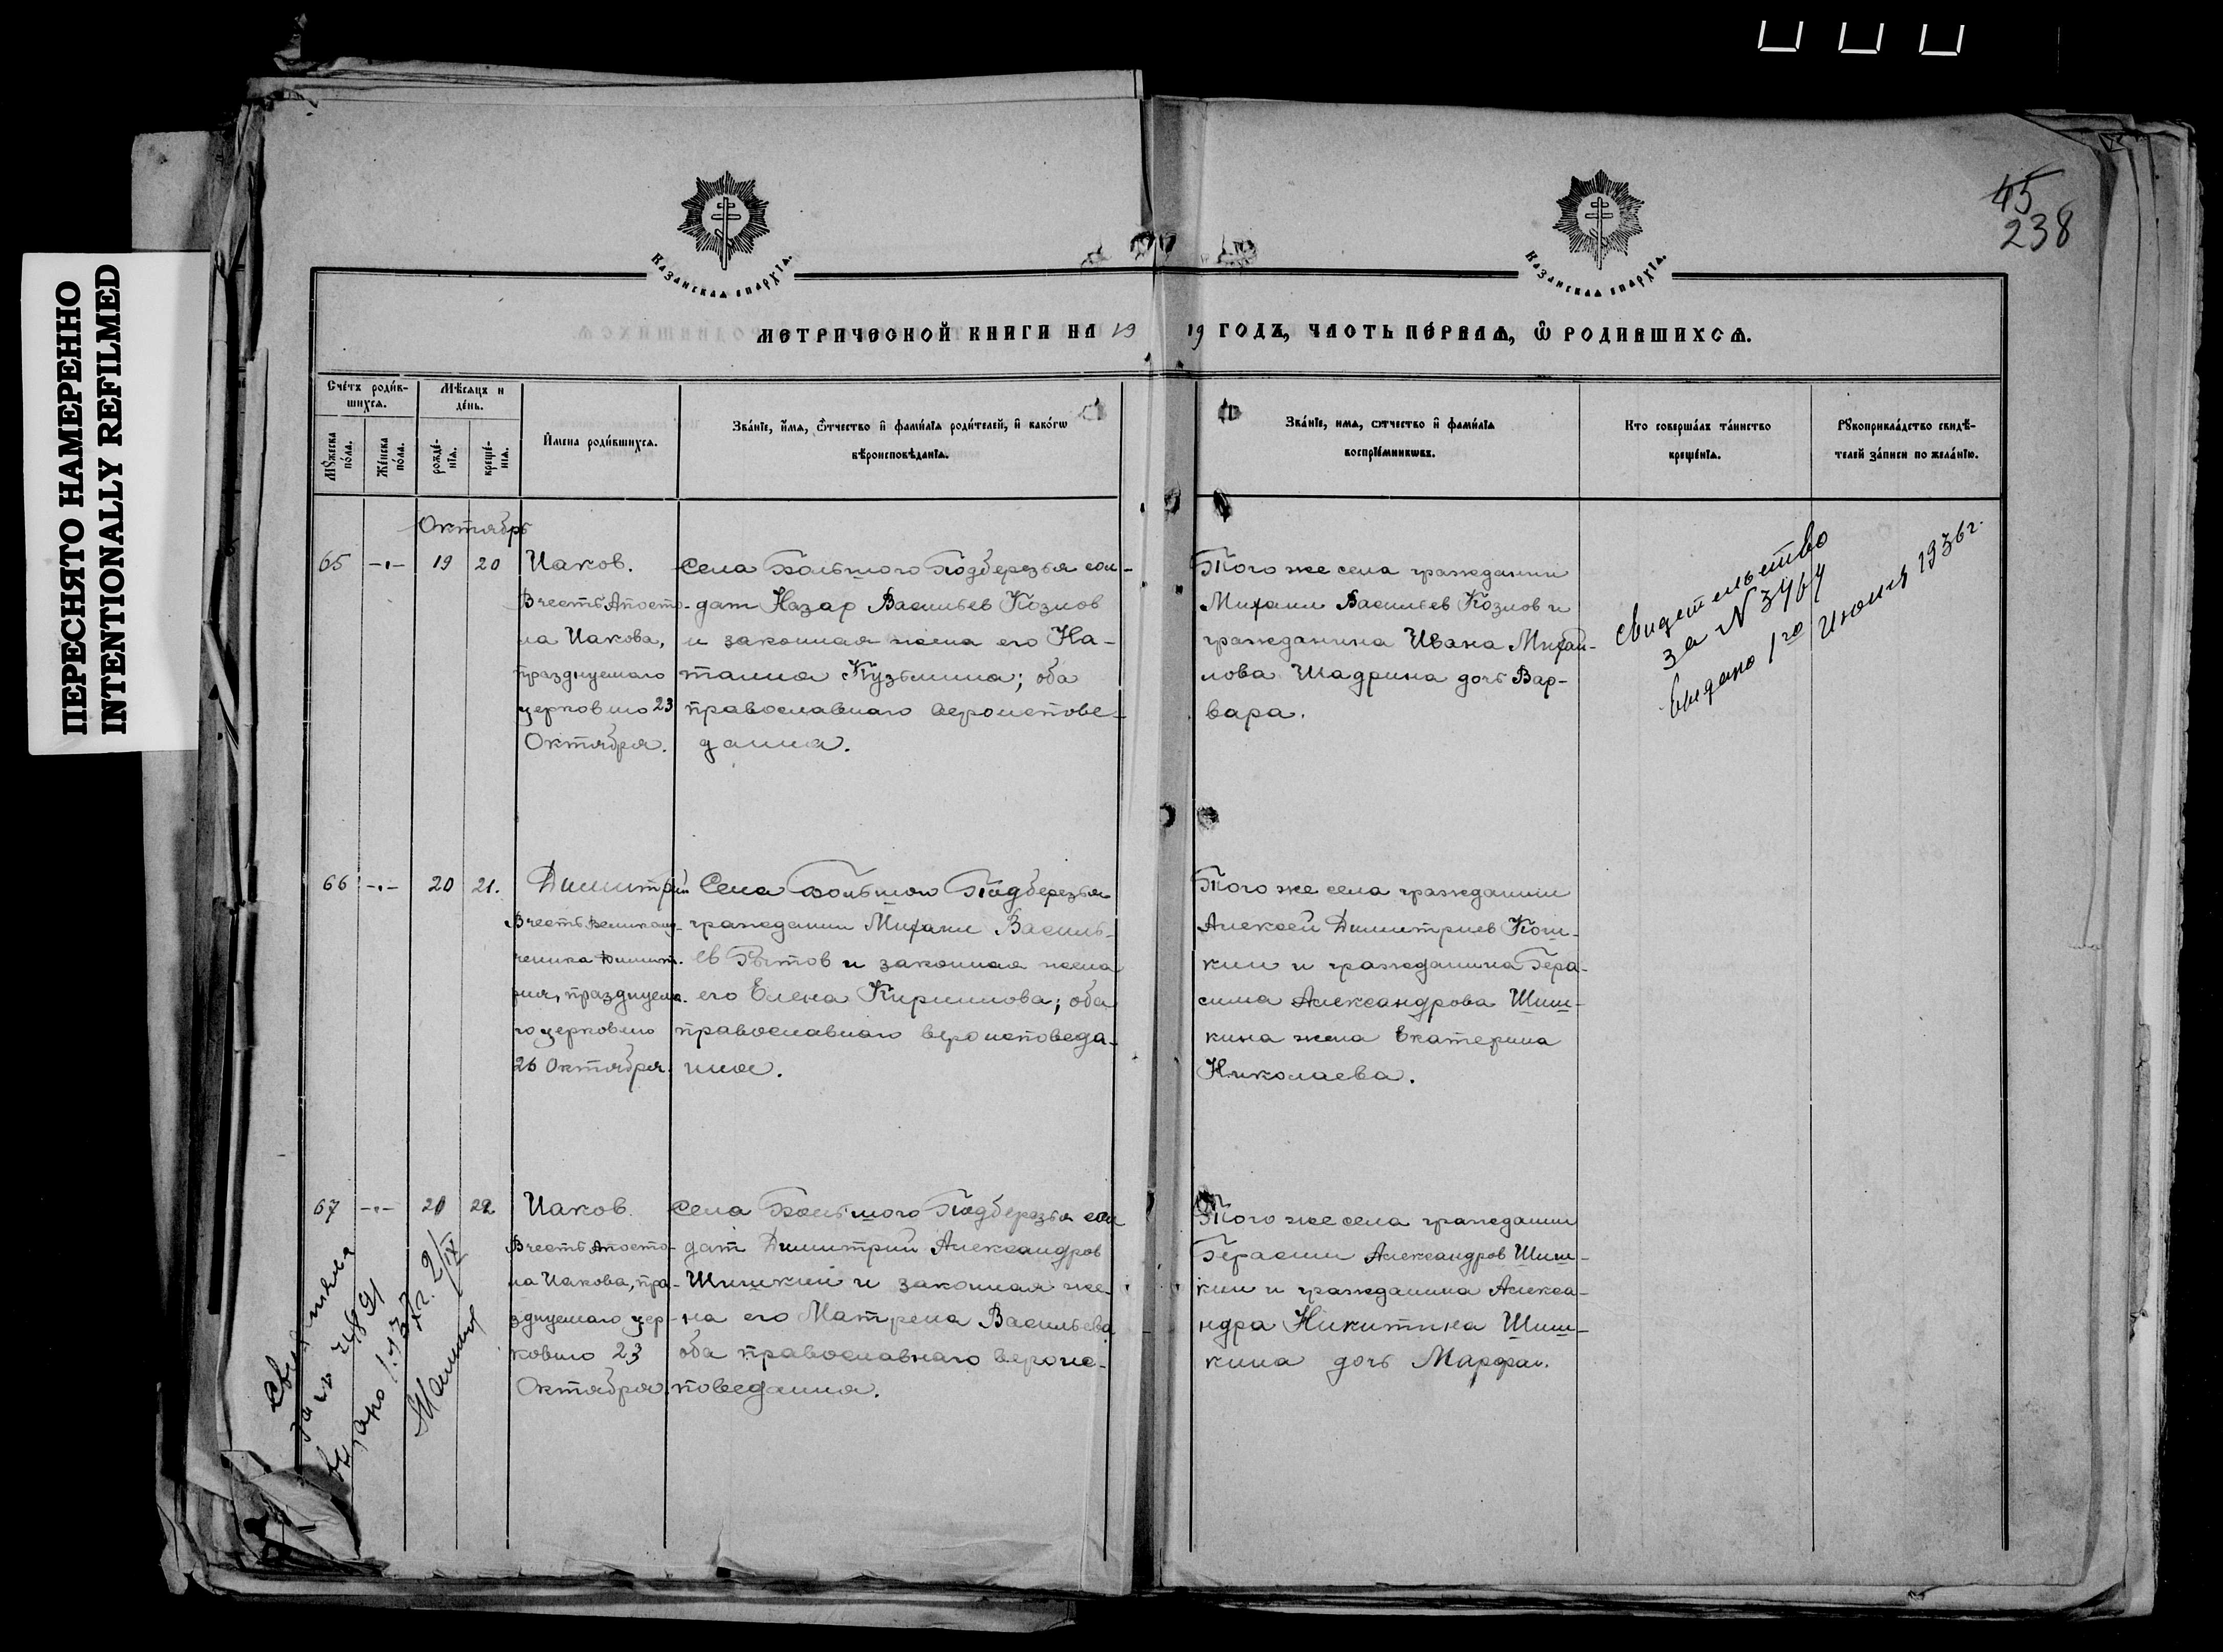 ПЕРЕСНЯТО НАМЕРЕННО
INTENTIONALLY REFILMED
45
238
КАЗАНСКАЯ ЕПАРХІЯ.
КАЗАНСКАЯ ЕПАРХІЯ.
МЕТРИЧЕСКОЙ КНИГИ НА 19 19 ГОДЪ, ЧАСТЬ ПЕРВАЯ, Ѡ РОДИВШИХСѦ.
Счетъ родив-
шихсѧ.
Мѣсяцъ и
день.
Мꙋжеска
пола.
Женска
пола.
рожде-
нїѧ.
креще-
нїѧ.
Имена родившихсѧ.
Званїе, имѧ, ѻтчество и фамилїѧ родителей, и какогѡ
вѣроисповѣданїѧ.
Званїе, имѧ, ѻтчество и фамилїѧ
воспрїемникѡвъ.
Кто совершалъ таинство
крещенїѧ.
Рꙋкоприкладство свидѣ-
телей записи по желанїю.
Октябрь
65 -„- 19 20
Иаков.
В честь Апосто-
ла Иакова,
празднуемаго
церковию 23
Октября.
Села Большого Подберезья сол-
дат Назар Васильев Козлов
и законная жена его На-
талия Кузьмина; оба
православнаго вероисповe-
дания.
Того же села гражданин
Михаил Васильев Козлов и
гражданина Ивана Михаи-
лова Шадрина дочь Вар-
вара.
Свидетельство
за N 3464
Выдано 1го Июня 1936г.
66 -„- 20 21.
Димитрий
В честь Великому-
ченика Димит-
рия, празднуема-
го церковию
26 Октября.
Села Большого Подберезья
гражданин Михаил Василь-
ев Рытов и законная жена
его Елена Кириллова; оба
православнаго вероисповеда-
ния.
Того же села гражданин
Алексей Димитриев Кош-
кин и гражданина Гера-
сима Александрова Шиш-
кина жена Екатерина
Николаева.
67 -„- 20 22
Иаков.
В честь Апосто-
ла Иакова, пра-
зднуемаго цер-
ковию 23
Октября.
Села Большого Подберезья сол-
дат Димитрий Александров
Шишкин и законная же-
на его Матрена Васильева
оба православнаго вероис-
поведания.
Того же села гражданин
Герасим Александров Шиш-
кин и гражданина Алекса-
ндра Никитина Шиш-
кина дочь Марфа.
за N 4891
2/IX